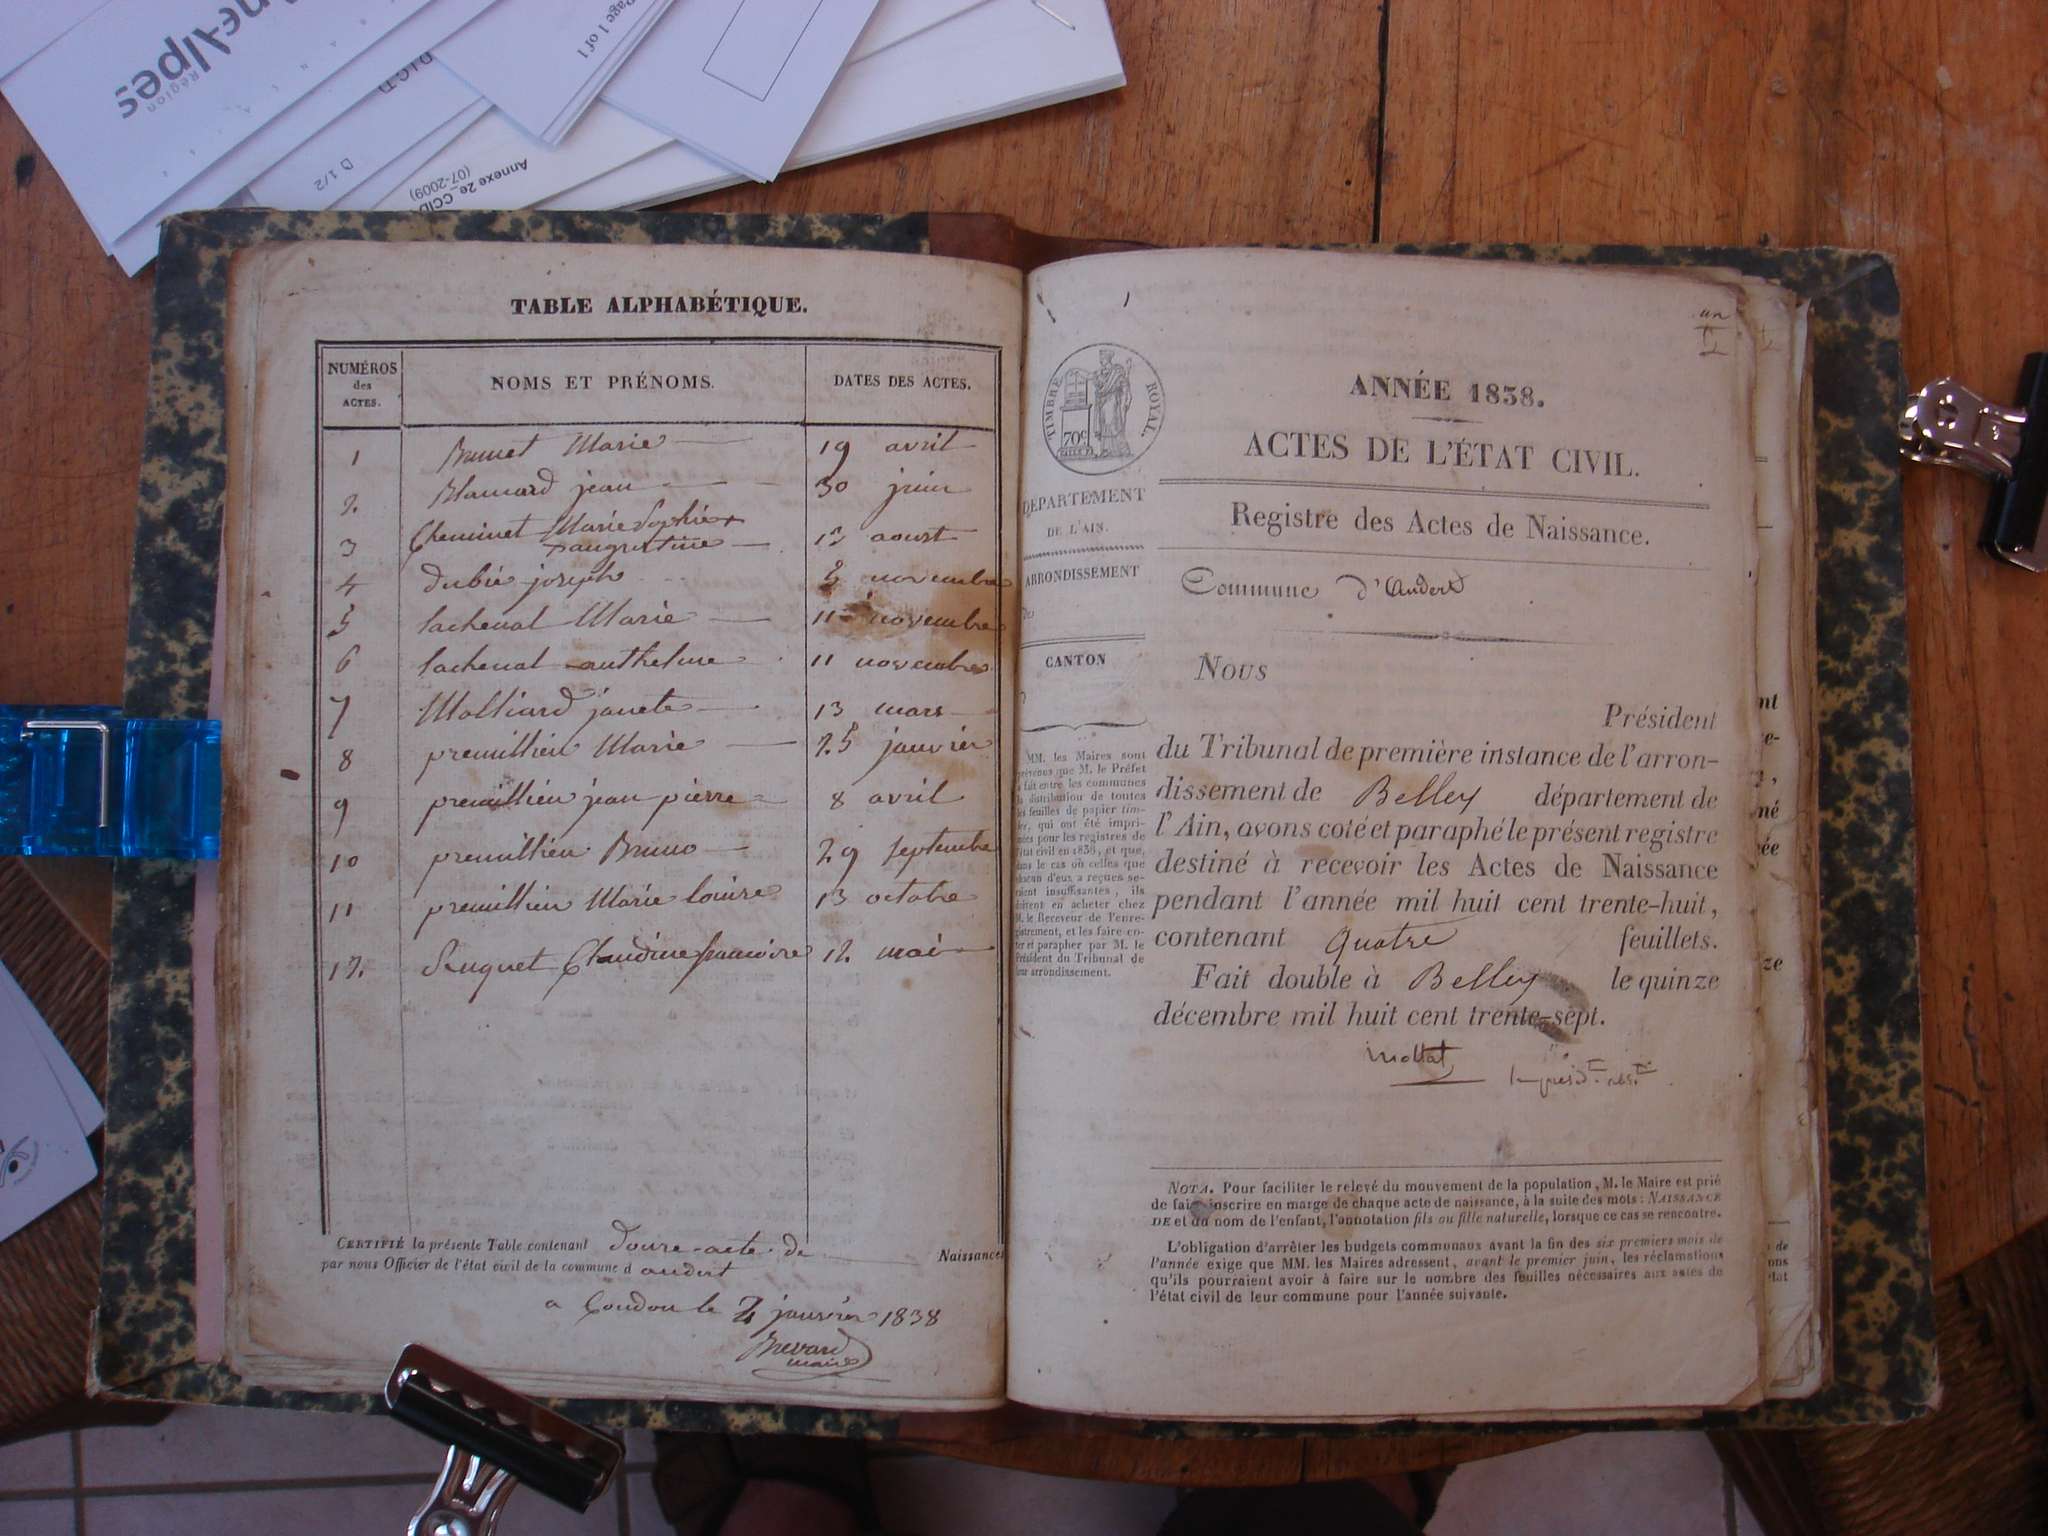 ne-Alpes
Région
Page 1 of 1
DICT
D 1/2
Annexe 2e_CCID
(07-2009)
TABLE ALPHABÉTIQUE.
NUMÉROS des ACTES.
NOMS ET PRÉNOMS.
DATES DES ACTES.
1 Brunet Marie 19 avril
2. jean 30 juin
3 Cheminet Marie Sophie +
+ augustine aoust
4 dubié joseph 3 novembre
5 lacheval Marie 11 novembre
6 lacheval anthelme 11 novembre
7 Molliard janete 13 mars
8 premillieu Marie 25 janvier
9 premillieu jean pierre 8 avril
10 premillieu Bruno 29 septembre
11 premillieu Marie louise 13 octobre
12. Claudine françoise 12 mai
CERTIFIÉ la présente Table contenant douze acte de Naissances
par nous Officier de l'état civil de la commune d andert
a Condon le janvier 1838
Brevard
maire
un
TIMBRE ROYAL.
70c
ANNÉE 1838.
ACTES DE L'ÉTAT CIVIL.
DÉPARTEMENT
DE L'AIN.
Registre des Actes de Naissance.
ARRONDISSEMENT
Commune d'Andert
CANTON
Nous
Président
du Tribunal de première instance de l'arron-
dissement de Belley département de
l'Ain, avons coté et paraphé le présent registre
destiné à recevoir les Actes de Naissance
pendant l'année mil huit cent trente-huit,
contenant Quatre feuillets.
Fait double à Belley le quinze
décembre mil huit cent trente-sept.
Mollat
MM. les Maires sont
prévenus que M. le Préfet
a fait entre les communes
la distribution de toutes
les feuilles de papier tim-
bré, qui ont été impri-
mées pour les registres de
l'état civil en 1838, et que,
dans le cas où celles que
chacun d'eux a reçues se-
raient insuffisantes, ils
doivent en acheter chez
M. le Receveur de l'enre-
gistrement, et les faire co-
ter et parapher par M. le
Président du Tribunal de
leur arrondissement.
NOTA. Pour faciliter le relevé du mouvement de la population, M. le Maire est prié
de faire inscrire en marge de chaque acte de naissance, à la suite des mots: NAISSANCE
DE et du nom de l'enfant, l'annotation fils ou fille naturelle, lorsque ce cas se rencontre.
L'obligation d'arrêter les budgets communaux avant la fin des six premiers mois de
l'année exige que MM. les Maires adressent, avant le premier juin, les réclamations
qu'ils pourraient avoir à faire sur le nombre des feuilles nécessaires aux actes de
l'état civil de leur commune pour l'année suivante.